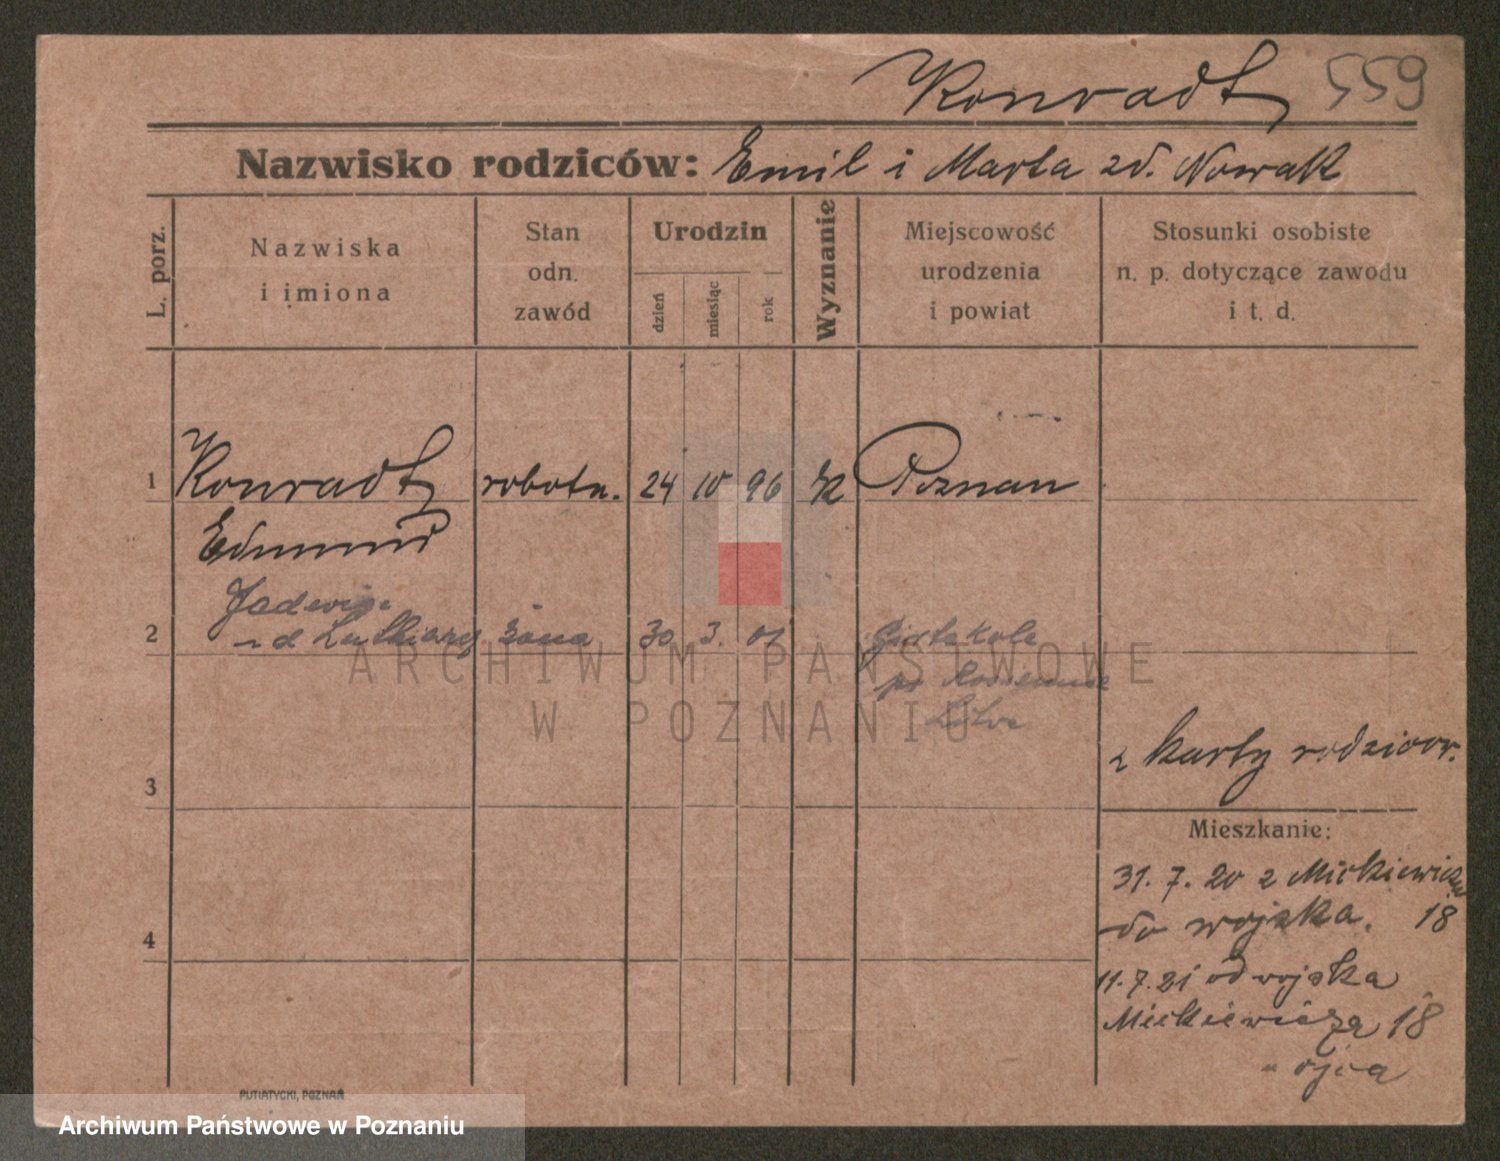 Konradt 559
Nazwisko rodziców: Emil i Marta zd. Nowak
L. porz.
Nazwiska
i imiona
Stan
odn.
zawód
Urodzin
dzień
miesiąc
rok
Wyznanie
Miejscowość
urodzenia
i powiat
Stosunki osobiste
n. p. dotyczące zawodu
i t. d.
1 Konradt robotn. 24 10 96 Poznań
Edmund
Jadwiga
2 żona 30 3. 01
Litwa
z karty rodzicow.
3
Mieszkanie:
31. 7. 20 z Mickiewicza
do wojska. 18
4
11.7.21 od wojska
Mickiewicza 18
ojca
PUTIATYCKI, POZNAŃ
ARCHIWUM PAŃSTWOWE
W POZNANIU
Archiwum Państwowe w Poznaniu